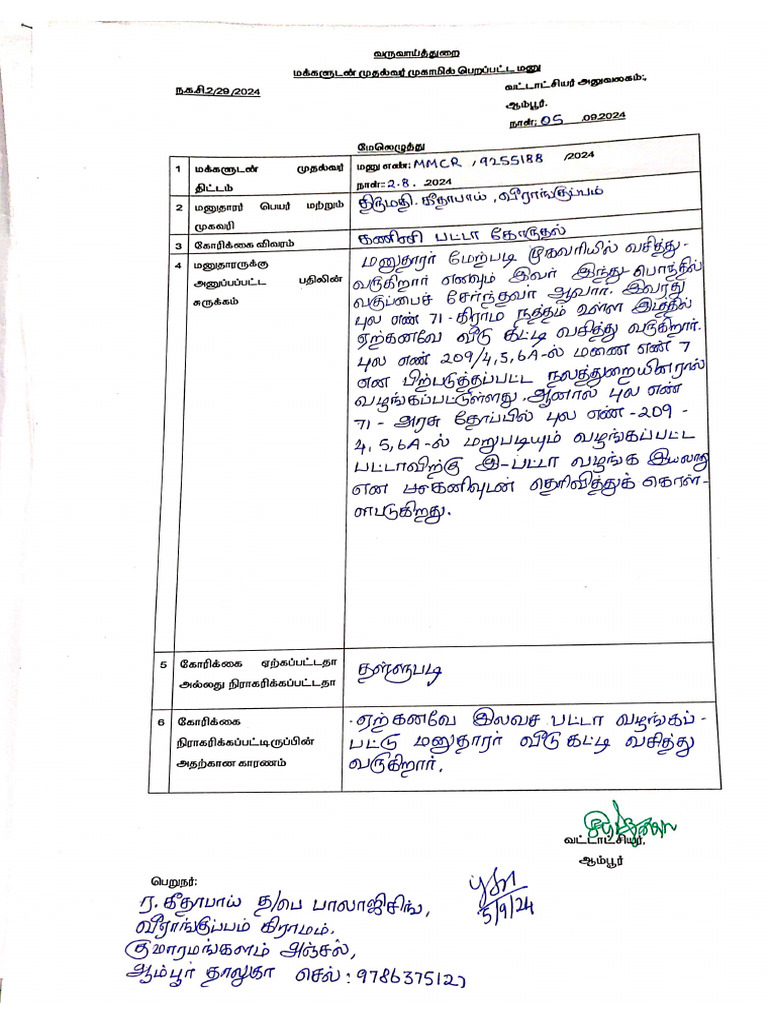 வருவாய்த்துறை
மக்களுடன் முதல்வர் முகாமில் பெறப்பட்ட மனு
ந.க.சி.2/29/2024
வட்டாட்சியர் அனுவலகம்:,
ஆம்பூர்.
நாள்: 05 .09.2024
மேலெழுத்து
1 மக்களுடன் முதல்வர் திட்டம்
மனு எண்: MMCR, 9255188 /2024
நாள்:: 2.8. .2024
2 மனுதாரர் பெயர் மற்றும் முகவரி
திருமதி. கீதாபாய், வீராங்குப்பம்
3 கோரிக்கை விவரம்
கணிணி பட்டா கோருதல்
4 மனுதாரருக்கு அனுப்பப்பட்ட பதிலின் சுருக்கம்
மனுதாரர் மேற்படி முகவரியில் வசித்து-
வருகிறார் எனவும் இவர் இந்து-
வகுப்பைச் சேர்ந்தவர் ஆவார். இவரது
புல எண் 71-கிராம நத்தம் உள்ள இடத்தில்
ஏற்கனவே வீடு கட்டி வசித்து வருகிறார்.
புல எண் 209/4,5,6A-ல் மனை எண் 7
என பிற்படுத்தப்பட்ட நலத்துறையினரால்
வழங்கப்பட்டுள்ளது. ஆனால் புல எண்
71- அரசு தோப்பில் புல எண் -209 -
4,5,6A-ல் மறுபடியும் வழங்கப்பட்ட
பட்டாவிற்கு இ-பட்டா வழங்க இயலாது
என தெரிவித்துக் கொள்-
ளபடுகிறது.
5 கோரிக்கை ஏற்கப்பட்டதா அல்லது நிராகரிக்கப்பட்டதா
தள்ளுபடி
6 கோரிக்கை நிராகரிக்கப்பட்டிருப்பின் அதற்கான காரணம்
ஏற்கனவே இலவச பட்டா வழங்கப்-
பட்டு மனுதாரர் வீடு கட்டி வசித்து
வருகிறார்.
வட்டாட்சியர்,
ஆம்பூர்
5/9/24
பெறுநர்:
ர. கீதாபாய் த/பெ பாலாஜிசிங்,
வீராங்குப்பம் கிராமம்.
குமாரமங்களம் அஞ்சல்,
ஆம்பூர் தாலுகா செல்: 9786375127